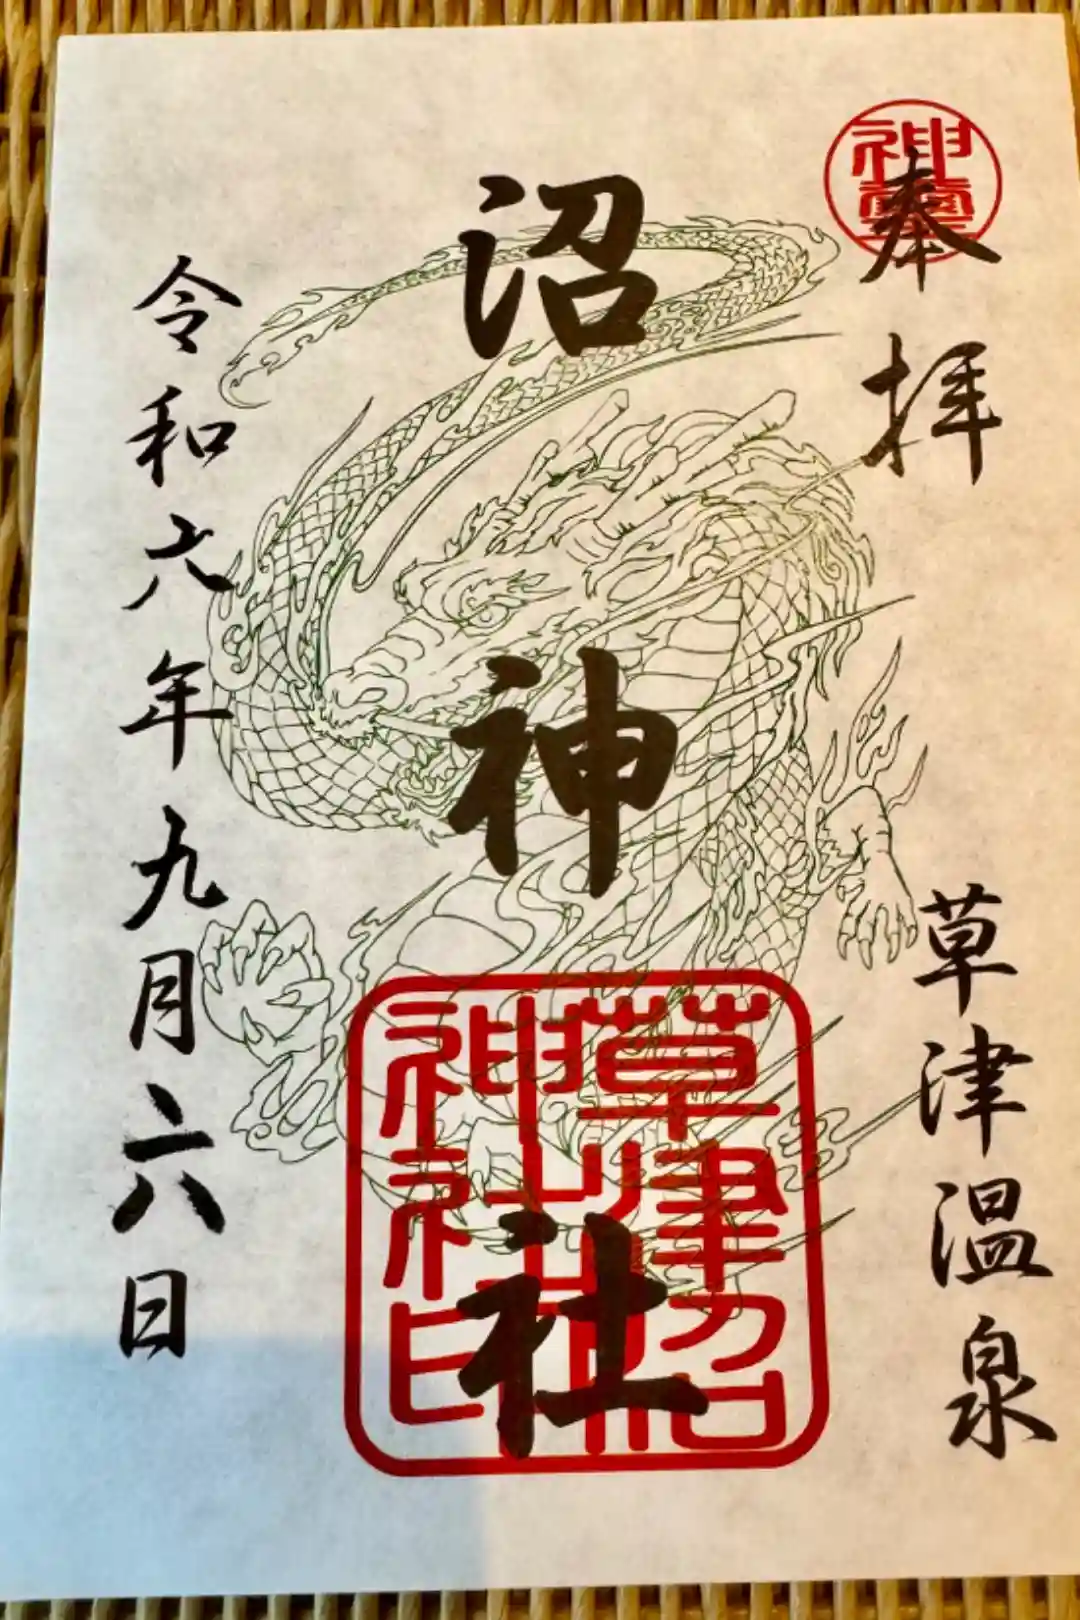 奉拝
草津温泉
沼神社
草津沼
神社印
令和六年九月六日